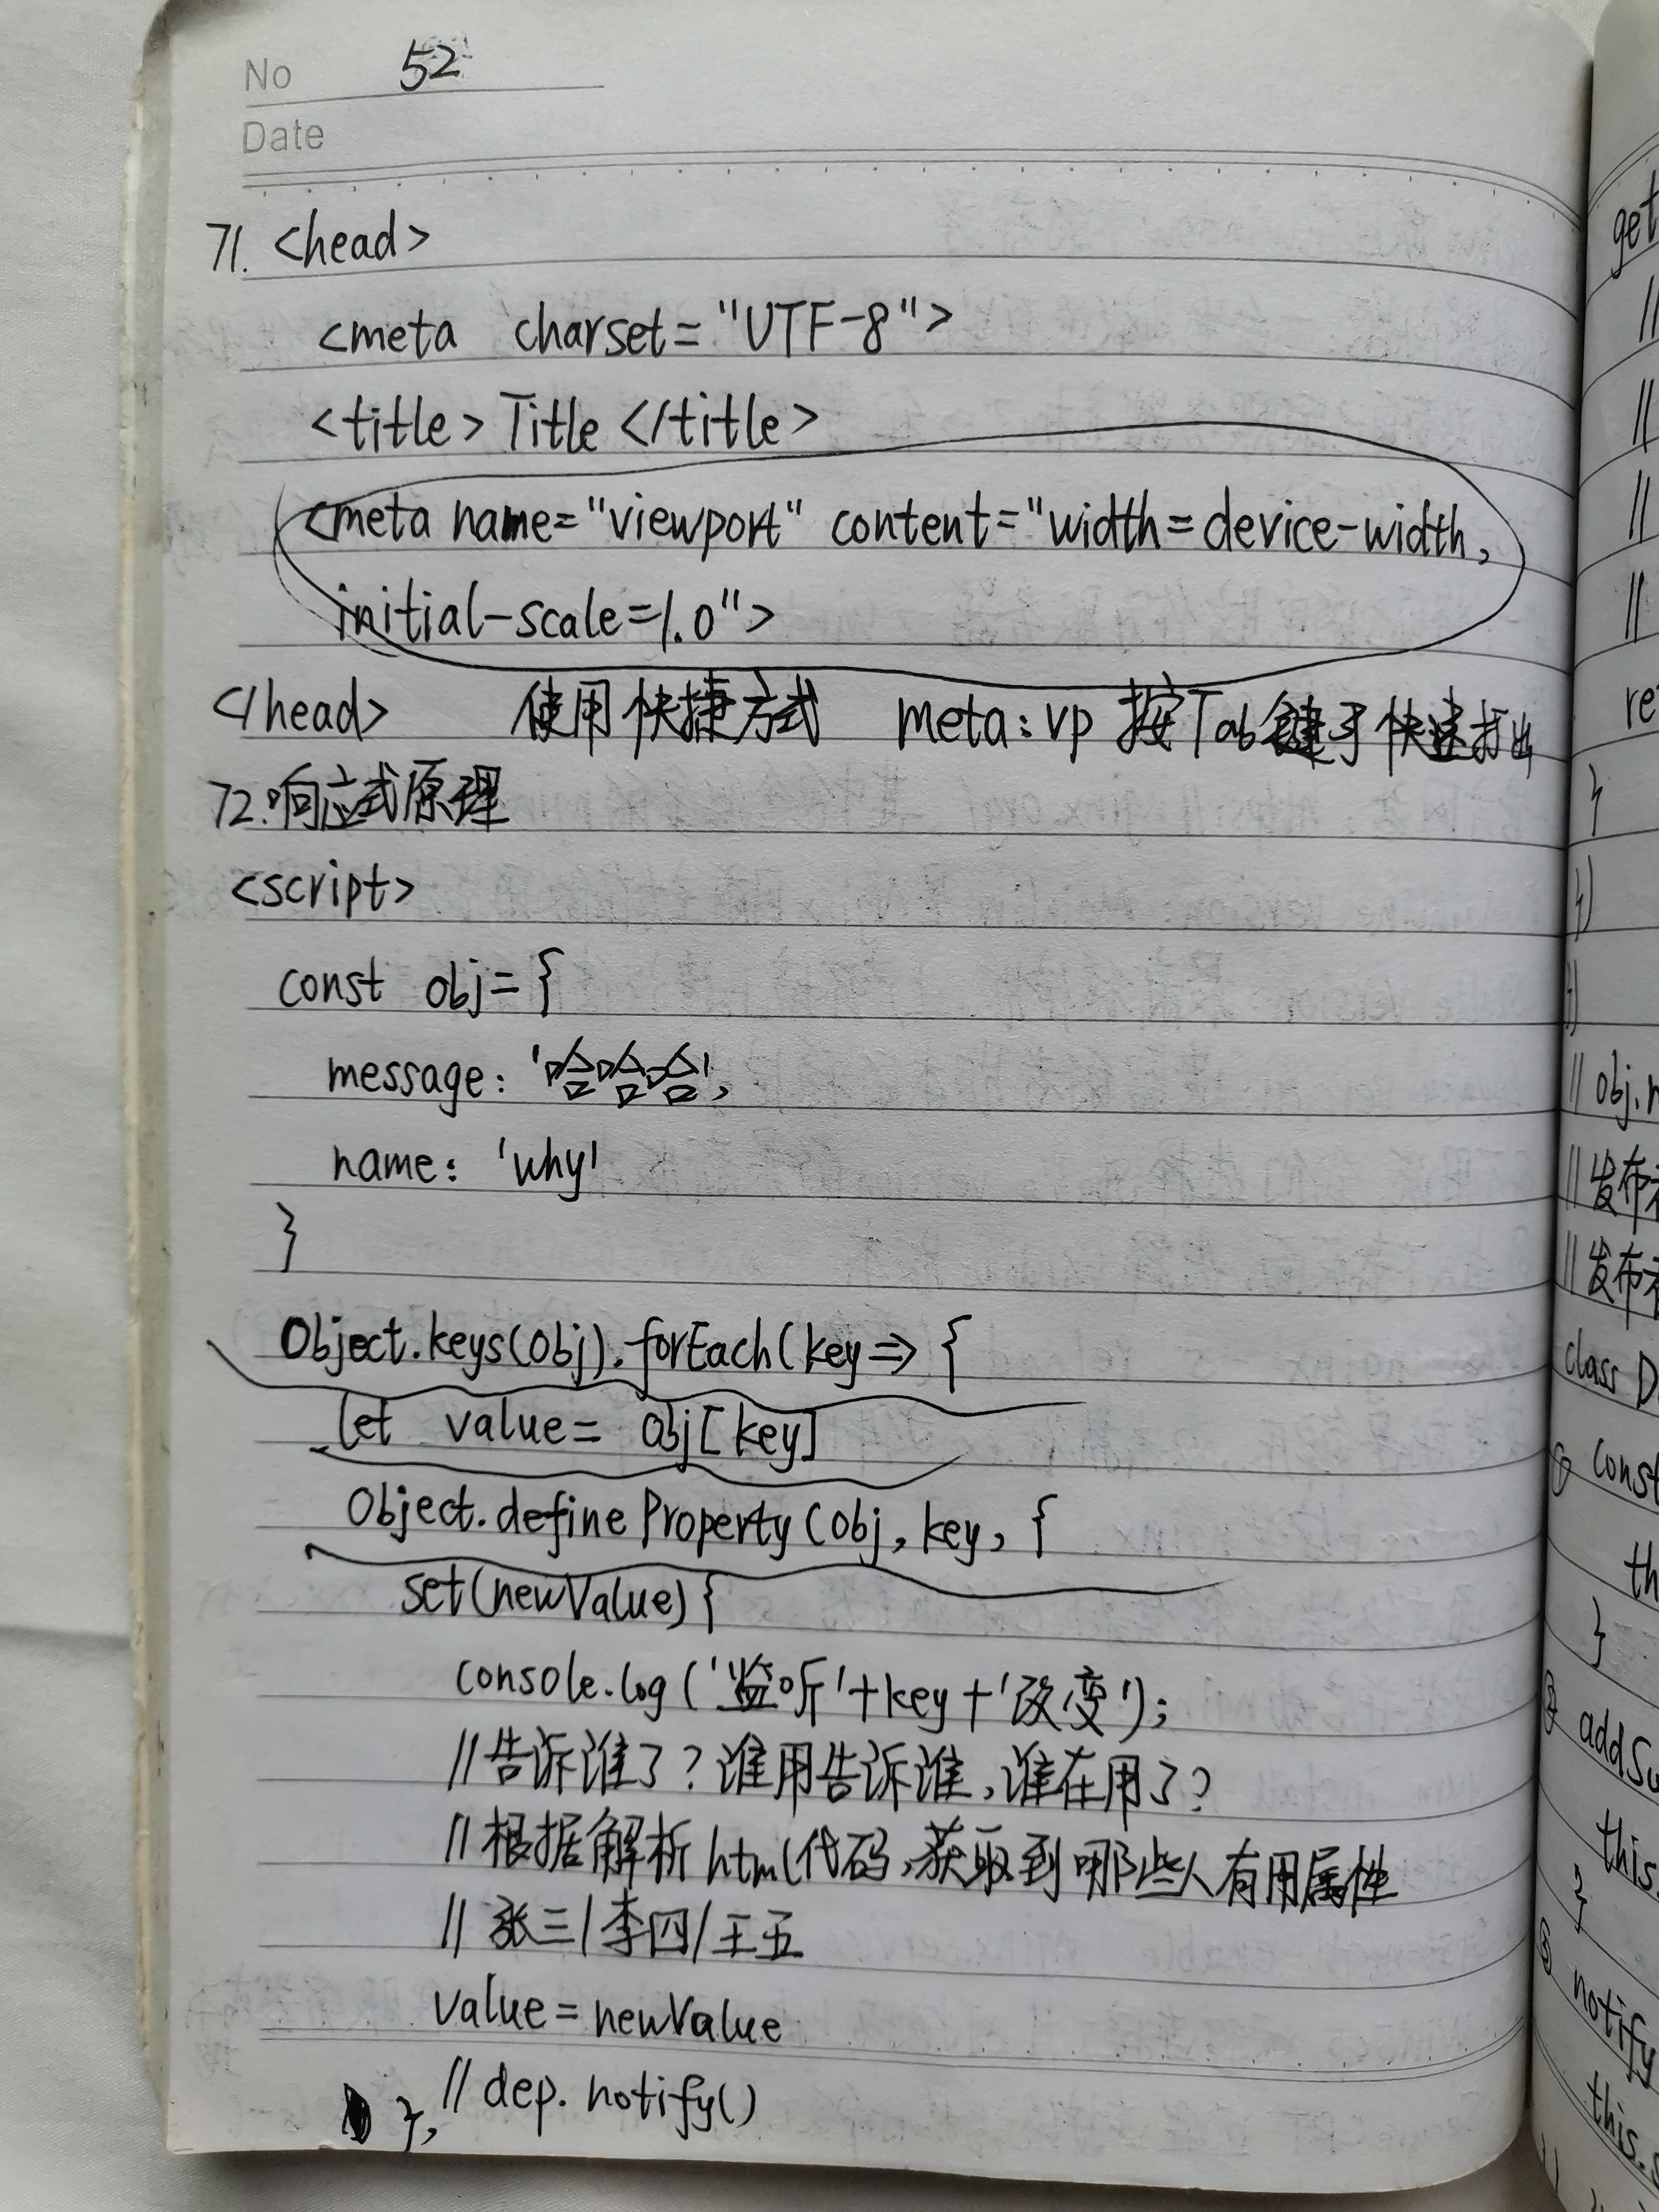 No 52
Date
71. <head>
<meta charset="UTF-8">
<title> Title </title>
<meta name="viewport" content="width=device-width,
initial-scale=1.0">
</head> 使用快捷方式 meta:vp 按Tab键可快速打出
72.响应式原理
<script>
const obj={
message: '哈哈哈',
name: 'why'
}
Object.keys(obj).forEach(key=> {
let value= obj[key]
Object.defineProperty(obj, key, {
set(newValue){
console.log('监听'+key+'改变');
//告诉谁了?谁用告诉谁,谁在用了?
//根据解析html代码,获取到哪些人有用属性
//张三/李四/王五
value=newValue
//dep.notify()
},
get
//
//
//
//
re
}
})
//obj.
//发布
//发布
class D
① const
th
}
② addSu
this.
}
③ notify
this.s